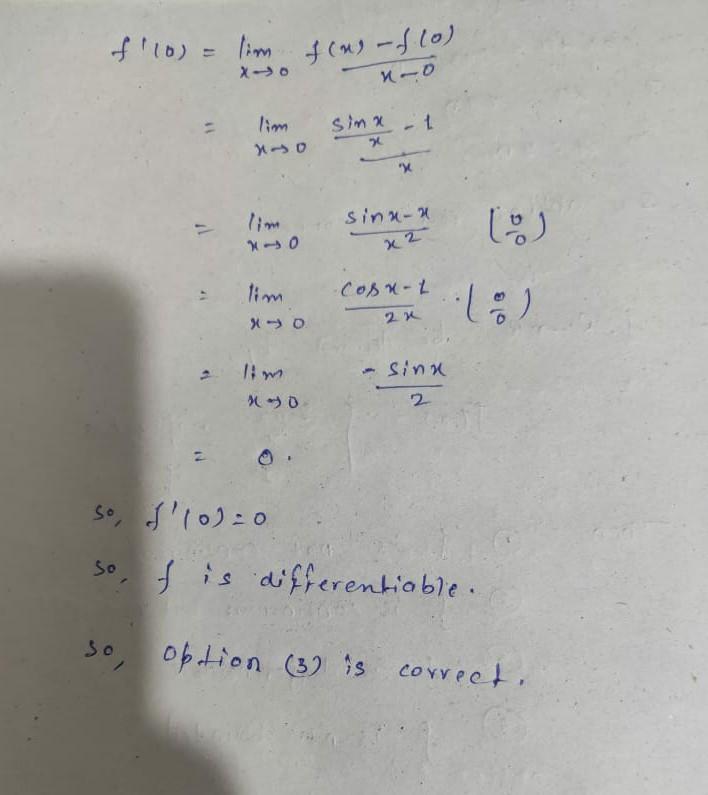 f'(0) = lim x→0 f(x) - f(0) / x-0
= lim x→0 sin x / x - 1 / x
= lim x→0 sin x - x / x2 (0/0)
= lim x→0 cos x - 1 / 2x . (0/0)
= lim x→0 - sin x / 2
= 0.
so, f'(0) = 0
so, f is differentiable.
so, option (3) is correct.